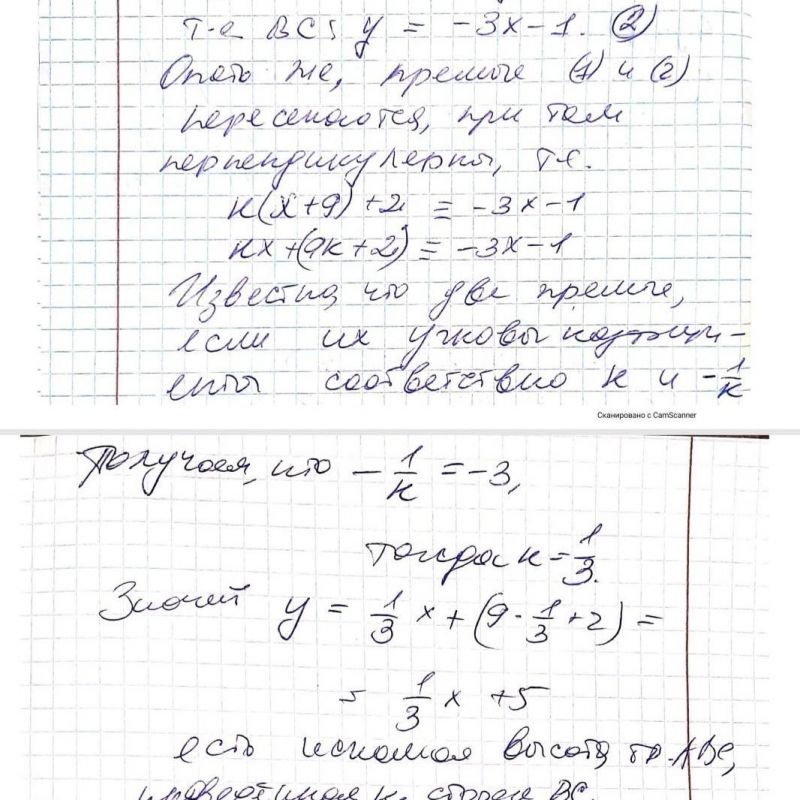 т.е BC: y = -3x-1. (2)
Опять же, прямые (1) и (2)
пересекаются, при том
перпендикулярны, т.е.
k(x+9)+2 = -3x-1
kx+(9k+2) = -3x-1
Известно, что две прямые,
если их угловы коэффици-
енты соответствено k и -1/k
Сканировано с CamScanner
Получаем, что -1/k = -3,
тогда k = 1/3.
Значит y = 1/3 x + (9 · 1/3 + 2) =
= 1/3 x + 5
есть искомая высота тр. ABC,
проведённая к стороне BC.